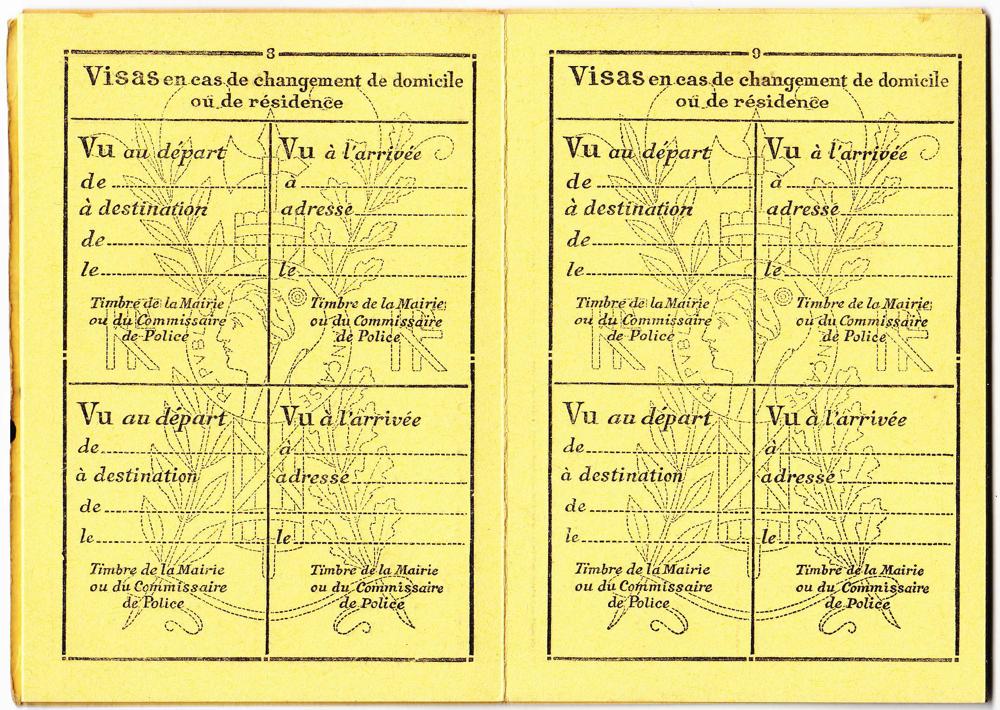 8
Visas en cas de changement de domicile
ou de résidence
Vu au départ
de
à destination
de
le
Timbre de la Mairie
ou du Commissaire
de Police
Vu à l'arrivée
à
adresse
le
Timbre de la Mairie
ou du Commissaire
de Police
Vu au départ
de
à destination
de
le
Timbre de la Mairie
ou du Commissaire
de Police
Vu à l'arrivée
à
adresse
le
Timbre de la Mairie
ou du Commissaire
de Police
RF
RF
9
Visas en cas de changement de domicile
ou de résidence
Vu au départ
de
à destination
de
le
Timbre de la Mairie
ou du Commissaire
de Police
Vu à l'arrivée
à
adresse
le
Timbre de la Mairie
ou du Commissaire
de Police
Vu au départ
de
à destination
de
le
Timbre de la Mairie
ou du Commissaire
de Police
Vu à l'arrivée
à
adresse
le
Timbre de la Mairie
ou du Commissaire
de Police
RF
RF